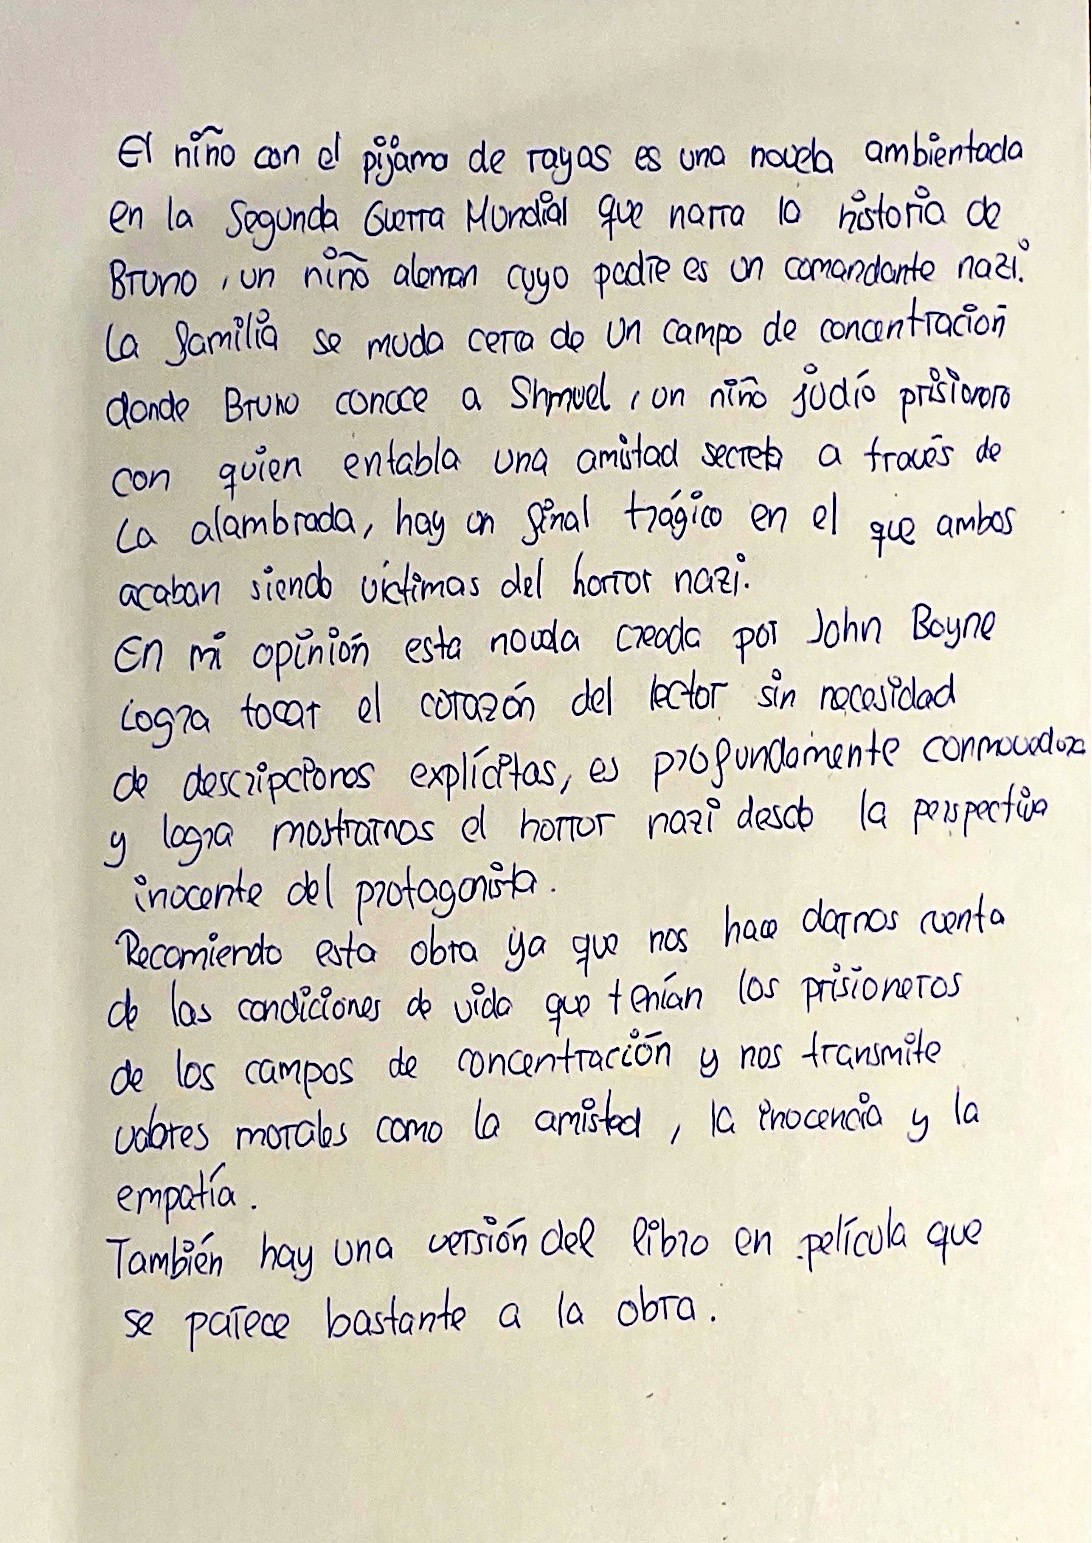 El niño con el pijama de rayas es una novela ambientada
en la Segunda Guerra Mundial que narra la historia de
Bruno, un niño aleman cuyo padre es un comandante nazi.
La familia se muda cerca de un campo de concentración
donde Bruno conoce a Shmuel, un niño judío prisionero
con quien entabla una amistad secreta a través de
la alambrada, hay un final trágico en el que ambos
acaban siendo víctimas del horror nazi.
En mi opinión esta novela creada por John Boyne
Logra tocar el corazón del lector sin necesidad
de descripciones explícitas, es profundamente conmovedora
y logra mostrarnos el horror nazi desde la perspectiva
inocente del protagonista.
Recomiendo esta obra ya que nos hace darnos cuenta
de las condiciones de vida que tenían los prisioneros
de los campos de concentración y nos transmite
valores morales como la amistad, la inocencia y la
empatía.
También hay una versión del libro en película que
se parece bastante a la obra.